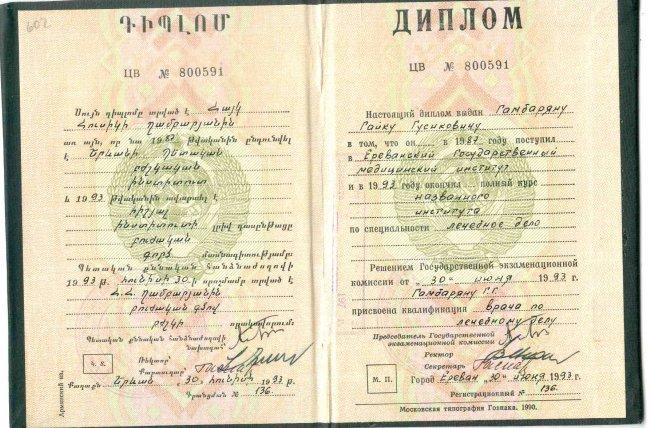 602
ԴԻՊԼՈՄ
ЦВ № 800591
Սույն դիպլոմը տրված է Հայկ
Հուսիկի Ղամբարյանին
առ այն, որ նա 1987 թվականին ընդունվել
է Երևանի Պետական
բժշկական
ինստիտուտ
և 1993 թվականին ավարտել է
հիշյալ
ինստիտուտի լրիվ դասընթացը
բուժական
գործ մասնագիտությամբ:
Պետական քննական հանձնաժողովի
1993 թ. հունիսի 30-ի որոշմամբ տրված է
Հ. Հ. Ղամբարյանին
բուժական գծով
բժշկի որակավորում:
Պետական քննական հանձնաժողովի
նախագահ՝
Կ. Տ.
Ռեկտոր՝
Քարտուղար՝
Քաղաք Երևան „30„ հունիսի 1993 թ.
Գրանցման № 136.
Армянский яз.
ДИПЛОМ
ЦВ № 800591
Настоящий диплом выдан Гамбаряну
Гайку Гусиковичу
в том, что он в 1987 году поступил
в Ереванский Государственный
медицинский институт
и в 1993 году окончил полный курс
названного
института
по специальности лечебное дело
Решением Государственной экзаменационной
комиссии от „30“ июня 1993 г.
Гамбаряну Г.Г.
присвоена квалификация врача по
лечебному делу
Председатель Государственной
экзаменационной комиссии
Ректор
Секретарь
М. П.
Город Ереван „30“ июня 1993 г.
Регистрационный № 136.
Московская типография Гознака. 1990.